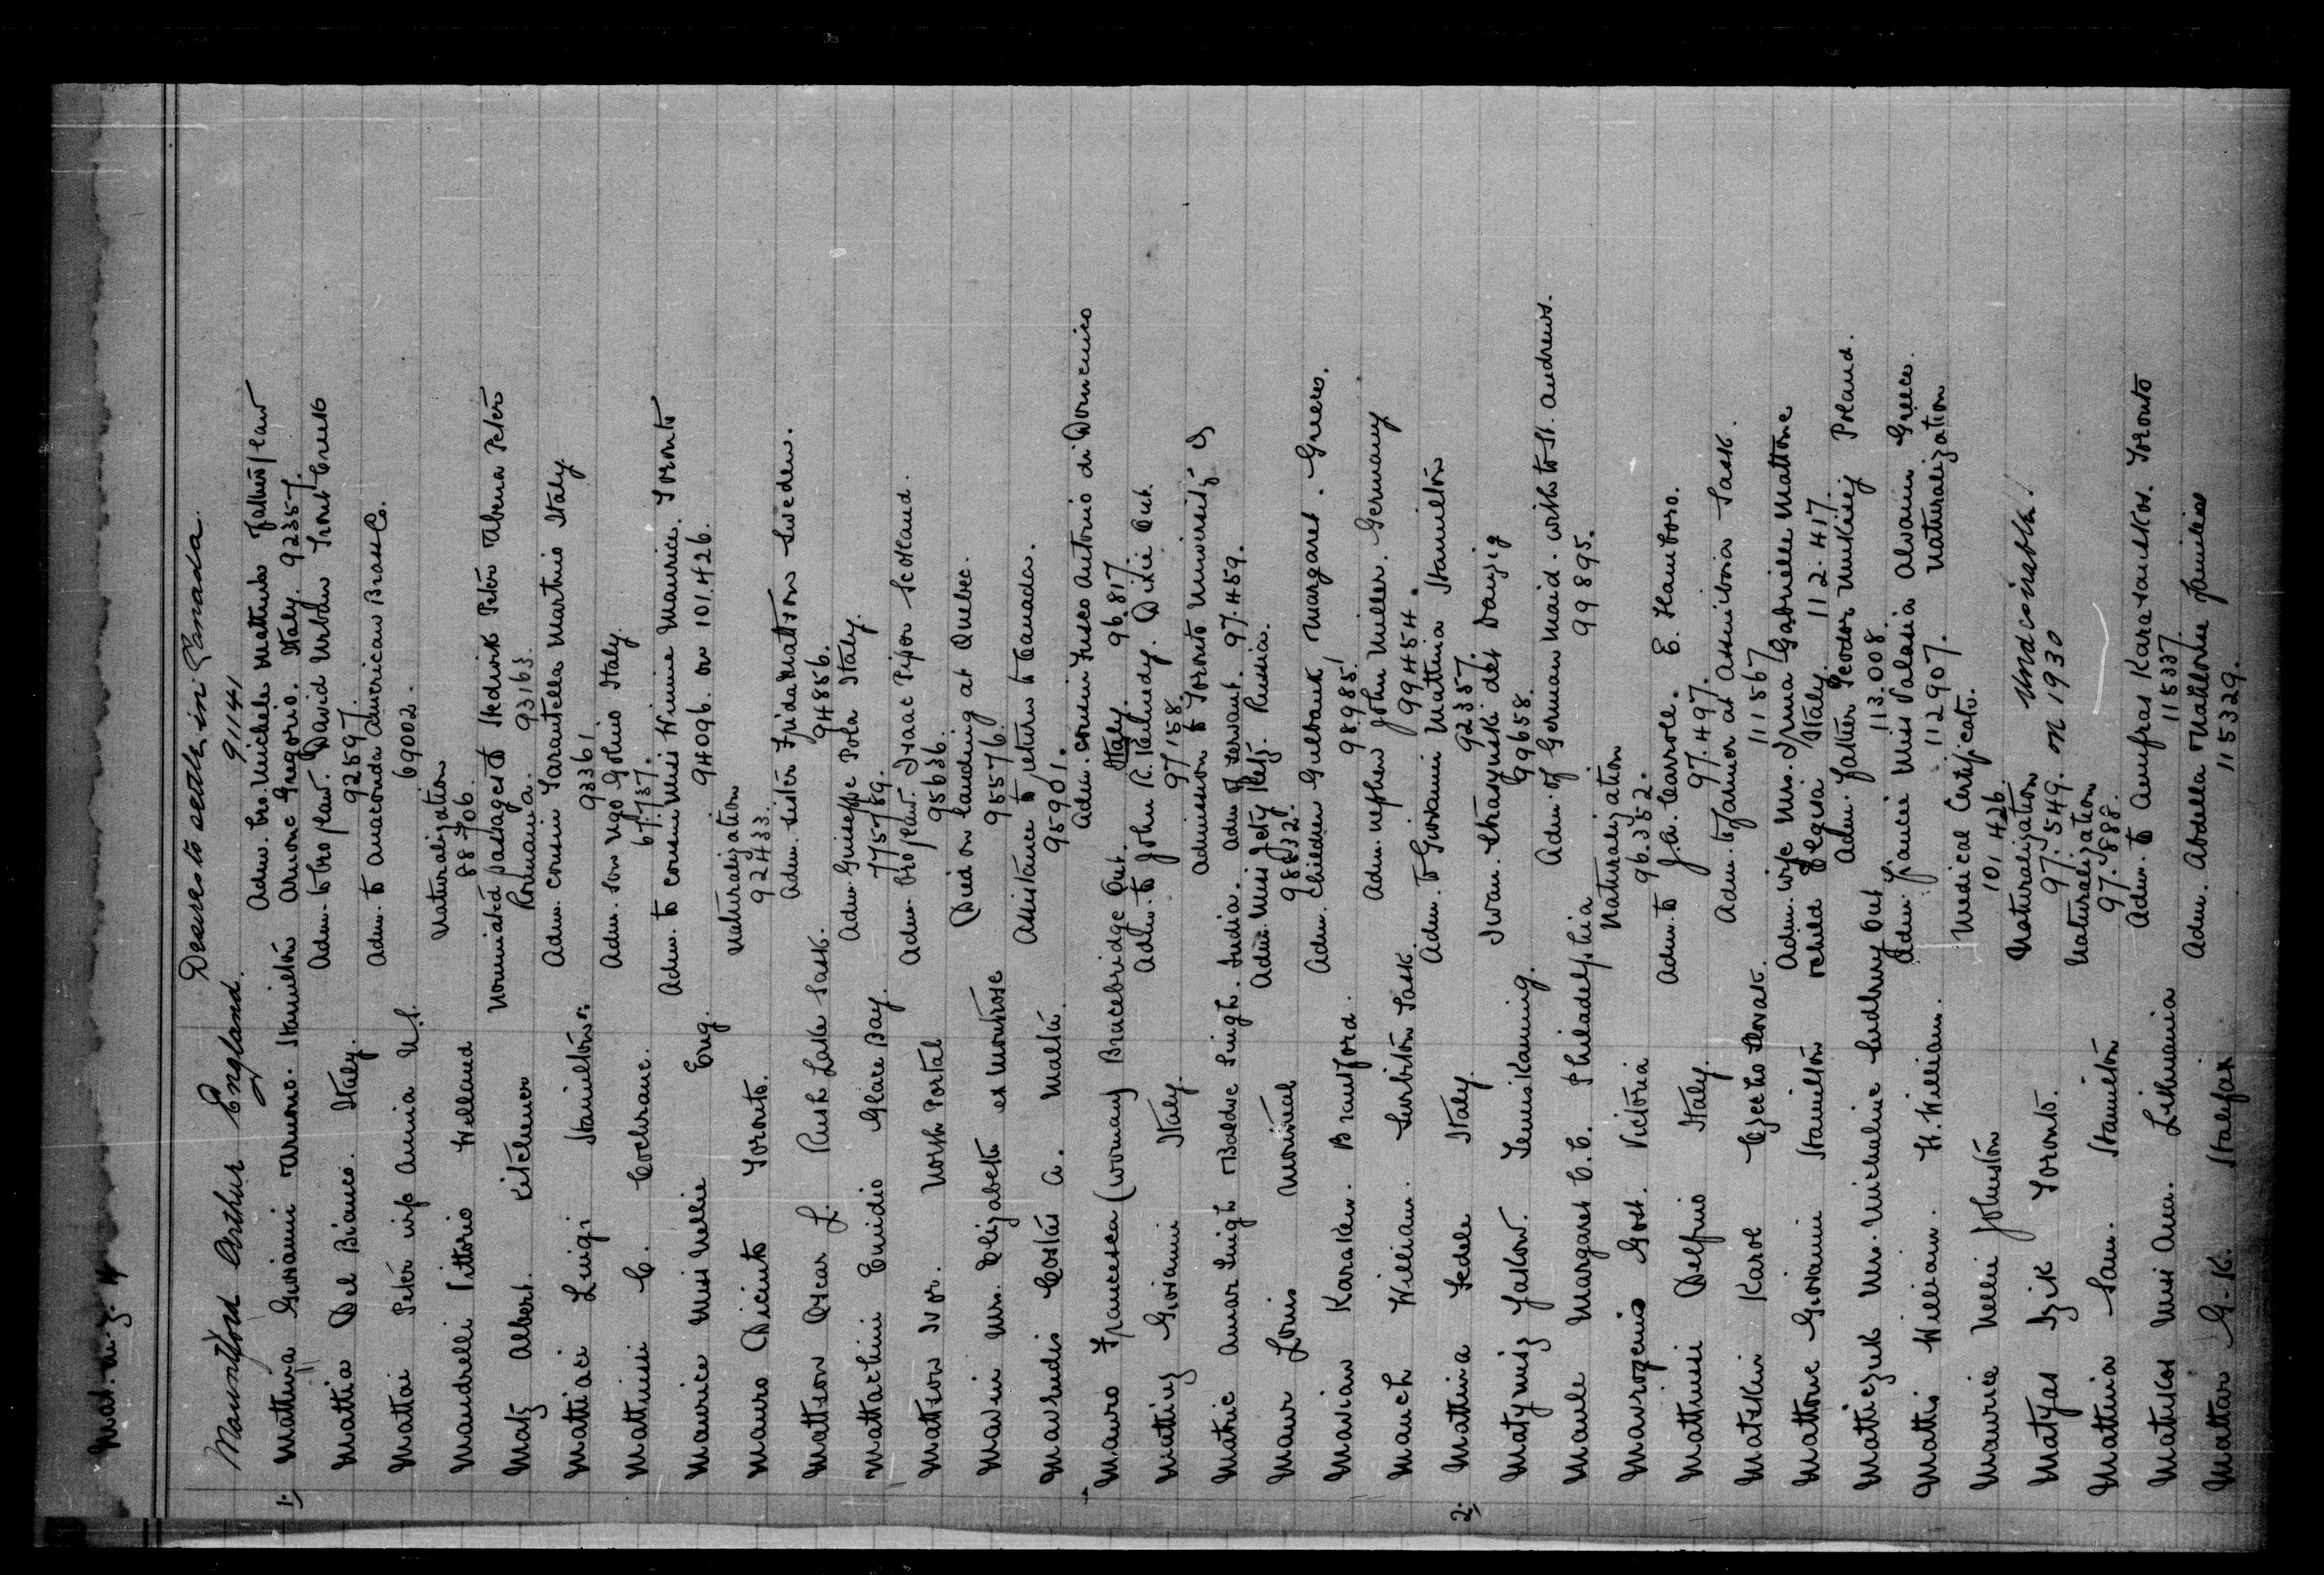 Mat. 
Mountford Arthur England. Desires to settle in Canada.
91141
1. Mattina Giovanni Armone. Hamilton Adm. bro. Michele Mattina father/law
Armone Gregorio. Italy. 92357.
Mattia Del Bianco. Italy. Adm. to bro/law. David Urban Trout Creek
92597.
Mattai Peter wife Annia U.S. Adm. to Anaconda American Brass Co.
69002.
Mandrelli Vittorio Welland Naturalization
88706.
Matz Albert. Kitchener Nominated passages of Hedwik Peter Abena Peter
Romania. 93163.
Mattiaci Luigi Hamilton. Adm. cousin Tarantella Martino Italy
93361
Mattinsi C. Cochrane. Adm. son Ugo Golino Italy.
67.737.
Maurice Miss Nellie Eng. Adm. to cousin Miss Winnie Maurice. Toronto
94096. on 101.426.
Mauro Diciuto Toronto. Naturalization
92433.
Mattson Oscar L. Rush Lake Sask. Adm. sister Frida Mattson Sweden.
94856.
Mattachini Emidio Glace Bay. Adm. Guiseppe Pola Italy.
775789.
Mattson Ivor. North Portal Adm. bro/law. Isaac Pison Scotland.
95636.
Mavin Mrs. Elizabeth ex Montrose Died on landing at Quebec.
95576.
Mavridis Costas A. Malta. Assistance to return to Canada.
95901.
Mauro Francesca (woman) Bracebridge Ont. Adm. cousin Fusco Antonio di Domenico
Italy. 96.817.
Matting Giovanni Italy. Adm. to John R. Kennedy. Dixie Ont.
97158.
Matric Amar Singh Baldve Singh. India. Admission to Toronto University &
Adm. of servant. 97.459.
Maur Louis Montreal Adm. Miss Jety Ketz. Russia.
98832.
Mavian Karaken. Brantford. Adm. children Gulbank Margaret. Greece.
98985.
Mauch William. Surbiton Sask. Adm. nephew John Miller. Germany
99454.
2. Mattina Fedele Italy. Adm. to Giovanni Mattina Hamilton
92357.
Matynisz Jakow. Temiskaming. Iwan Danzig
99658.
Maule Margaret C.C. Philadelphia Adm. of German maid. with to St. Andrews.
99895.
Mavrogenis Gost. Victoria Naturalization
96.352.
Mattinsi Delfino Italy. Adm. to J.A. Carrole. E. Flamboro.
97.497.
Matskin Karol Czecho Slovak. Adm. to farmer at Assiniboia Sask.
111567
Mattone Giovanni Hamilton Adm. wife Mrs. Irma Gabrielle Mattone
child Italy. 112.417.
Matticzuk Mrs. Micheline Sudbury Ont Adm. father Teodor Mukisej Poland.
113.008.
Mattis William. Ft. William. Adm. fiancee Miss Palasia Alvanu Greece.
112907. Naturalization
Maurice Nellie Johnston Medical Certificate.
101.426.
Matyas Izik Toronto. Naturalization undesirable!
97.549. on 1930
Mattina Sam. Hamilton Naturalization
97.888.
Matukas Miss Ann. Lithuania Adm. to Amufras Karasauskas. Toronto
115337.
Mattar G.K. Halifax Adm. Abdella Mahlouw families
115329.